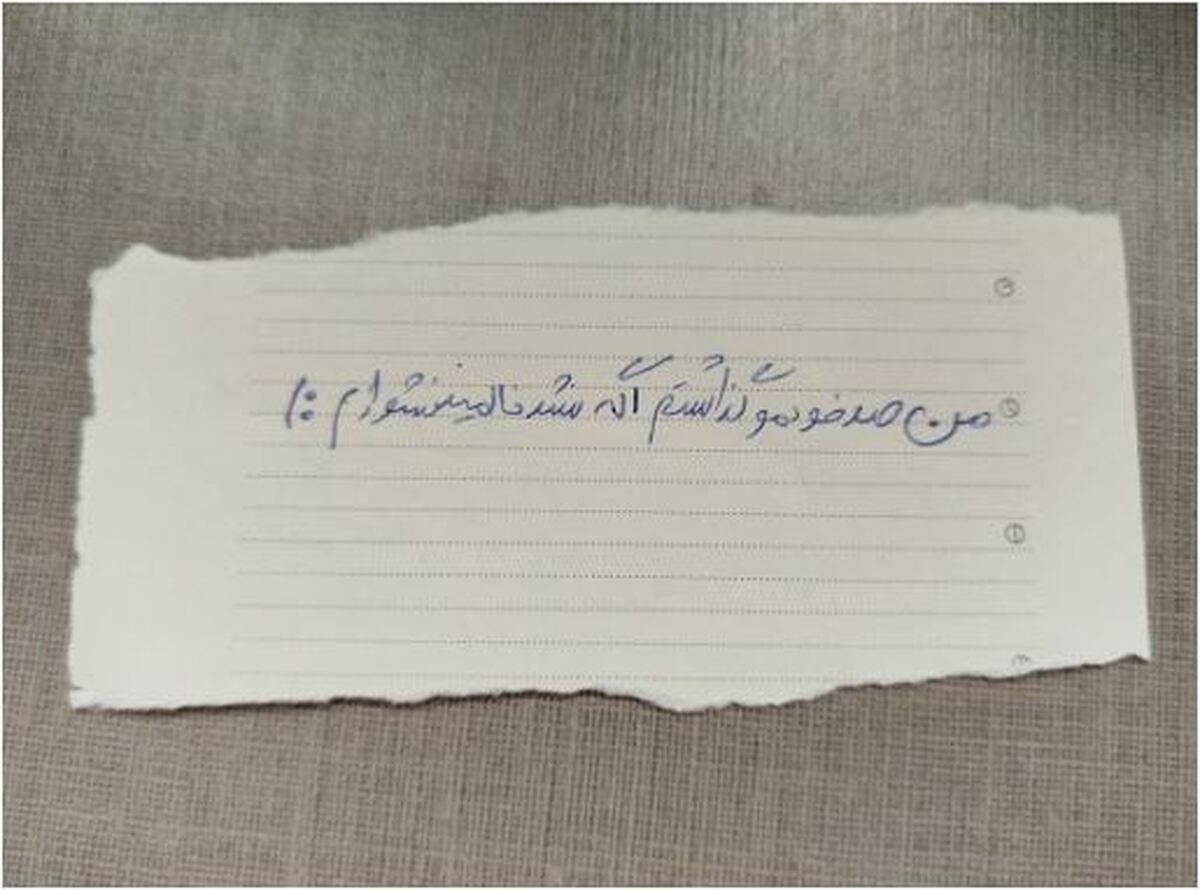 من صد خودمو گذاشتم اگه نشد ناامید نشو ازم :)